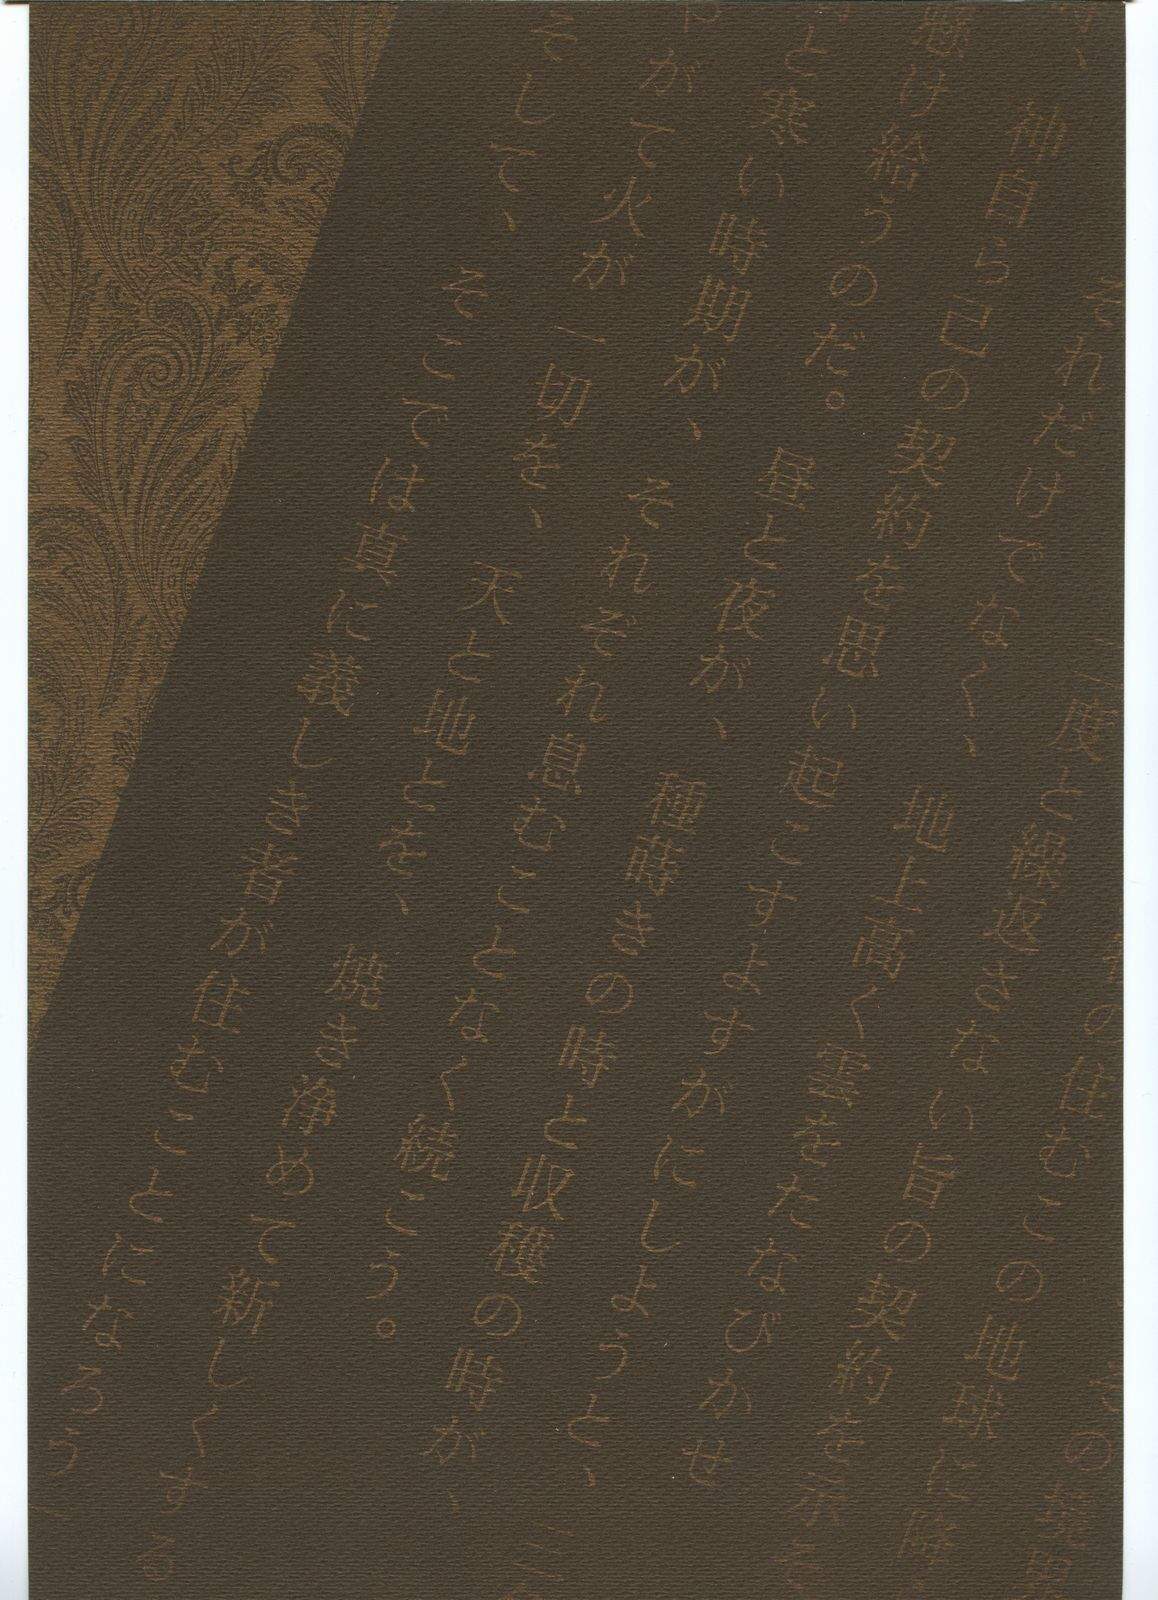 その
の住むこの地球に降
二度と繰返さない旨の契約を示そ
それだけでなく、地上高く雲をたなびかせ
、神自ら己の契約を思い起こすよすがにしようと、
懸け給うのだ。昼と夜が、種蒔きの時と収穫の時が、
と寒い時期が、それぞれ息むことなく続こう。
やがて火が一切を、天と地とを、焼き浄めて新しくする
そして、そこでは真に義しき者が住むことになろう